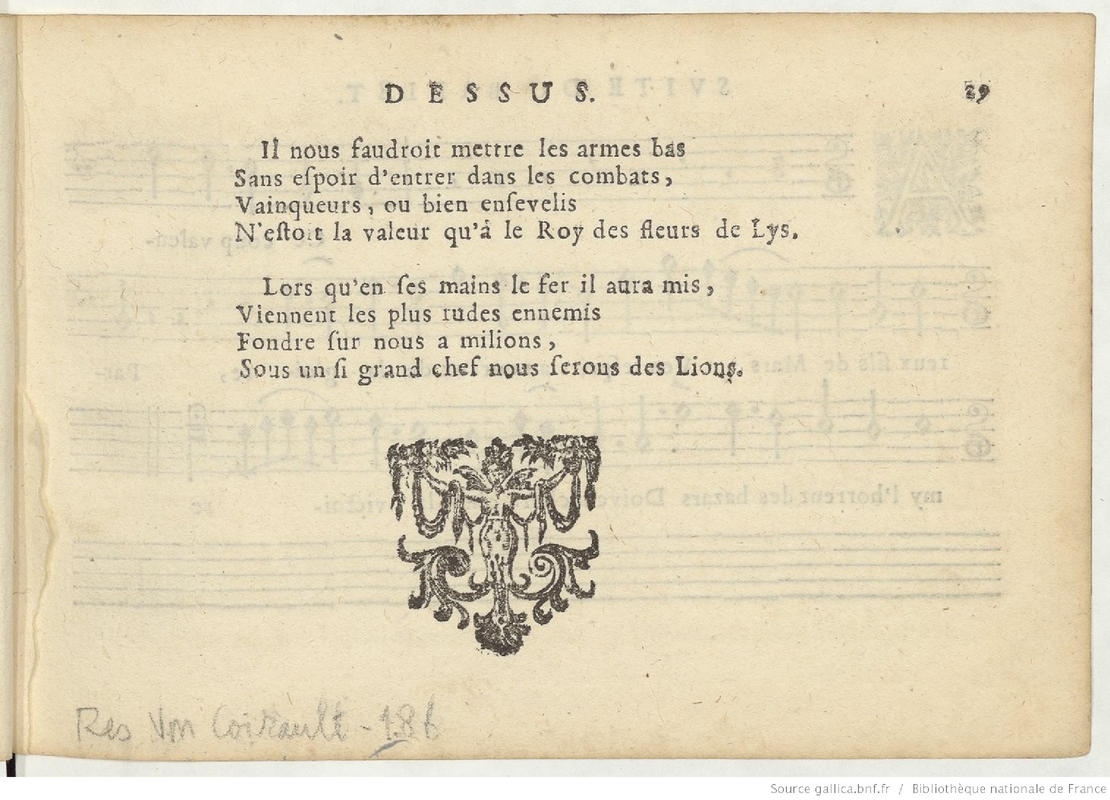 DESSUS.
29
Il nous faudroit mettre les armes bas
Sans eſpoir d'entrer dans les combats,
Vainqueurs, ou bien enſevelis
N'eſtoit la valeur qu'à le Roy des fleurs de Lys.
Lors qu'en ſes mains le fer il aura mis,
Viennent les plus rudes ennemis
Fondre ſur nous a milions,
Sous un ſi grand chef nous ſerons des Lions.
Res Vm Coirault - 186
Source gallica.bnf.fr / Bibliothèque nationale de France